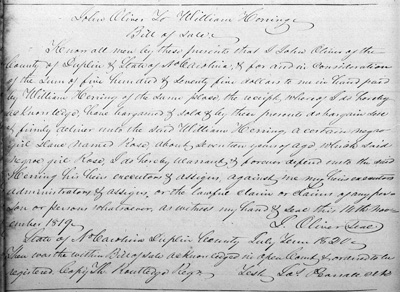 John Oliver To William Herring
Bill of Sale
Know all men by these presents that I John Oliver of the
County of Duplin & State of No Carolina, & for and in consideration
of the Sum of five hundred & Seventy five dollars to me in hand paid
by William Herring of the Same place, the receipt whereof I do hereby
acknowledge, have bargained & sold & by these presents do bargain sell
& firmly deliver unto the said William Herring, a certain negro
girl Slave, named Rose, about Seventeen years of age, which said
negroe girl Rose, I do hereby warrant & forever defend unto the said
Herring his heirs executors & assigns, against me my heirs executors
administrators & assigns, or the lawful claim or claims of any per
son or persons whatsoever, as witness my hand & Seal this 16th Nov
ember 1819. J. Oliver Seal
State of No Carolina Duplin County July Term 1820
Then was the within Bill of Sale acknowledged in open Court & ordered to be
registered Test Jas Pearsall Clk